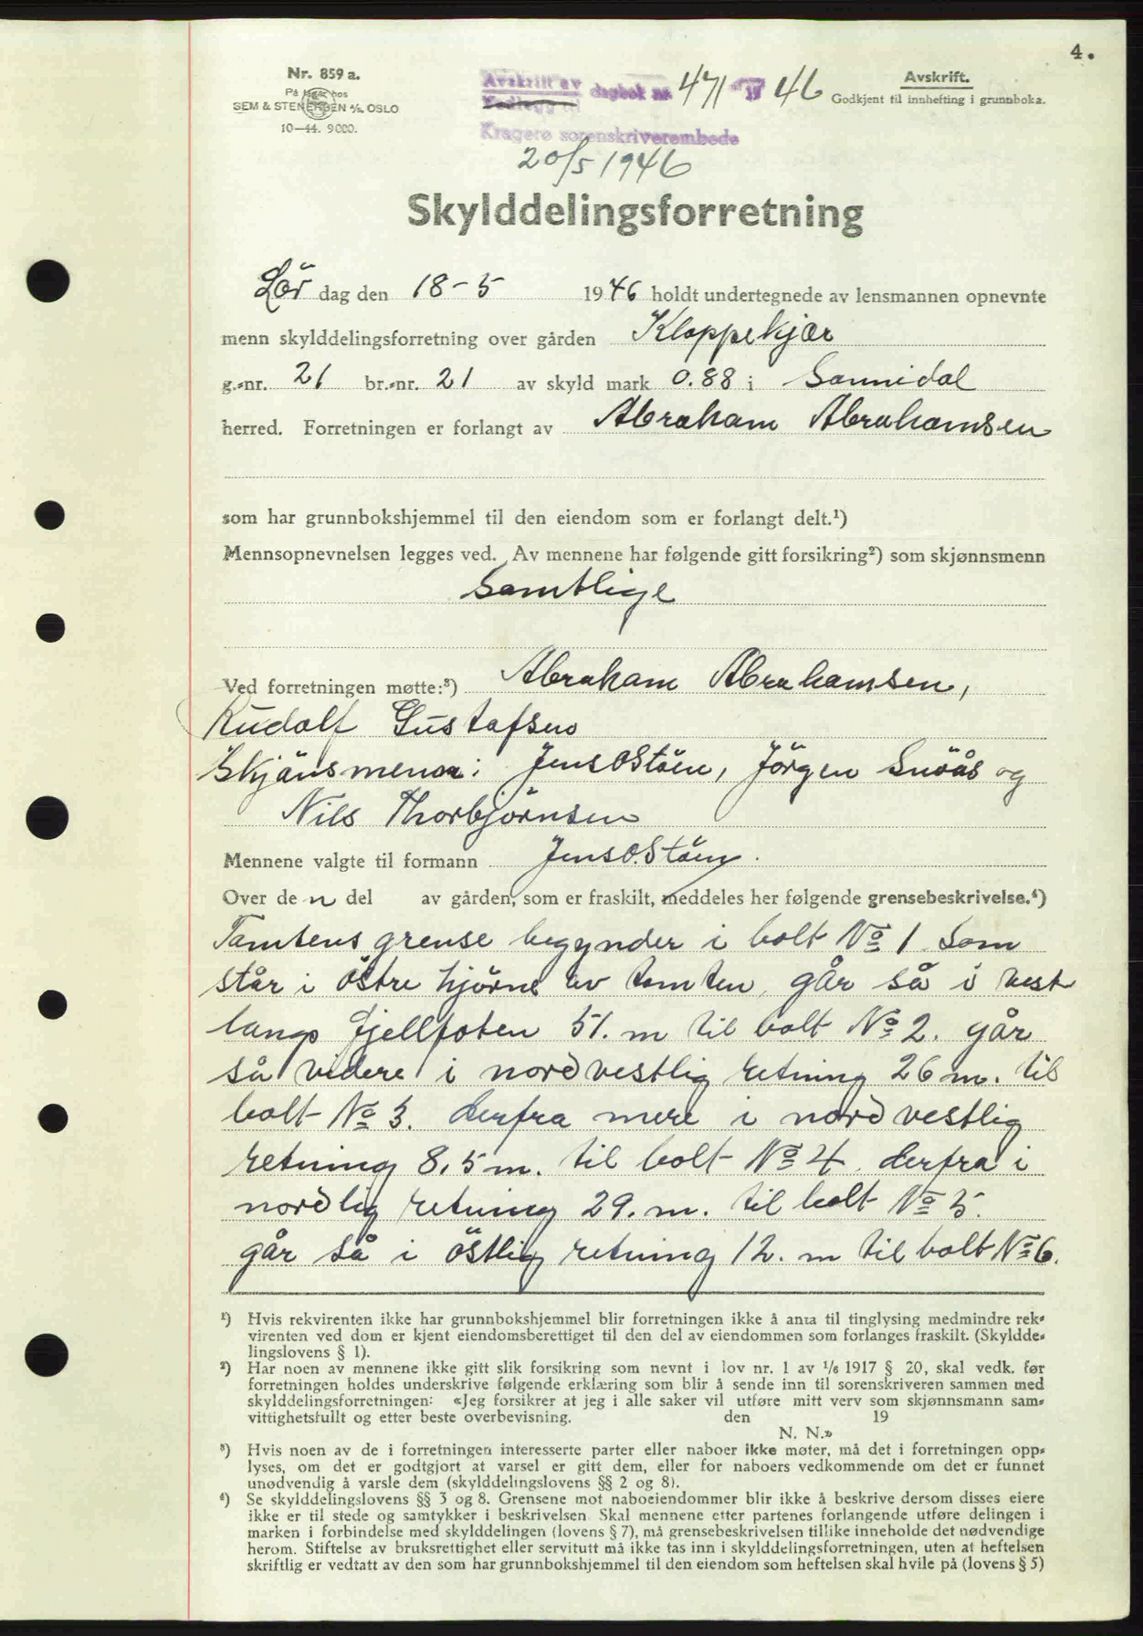 4.
Nr. 859 a.
På lager hos
SEM & STENERSEN A/S. OSLO
10—44. 9000.
Avskrift av dagbok nr. 471 19 46
Vedlegg til
Kragerø sorenskriverembede
20/5 1946
Avskrift.
Godkjent til innhefting i grunnboka.
Skylddelingsforretning
Lör dag den 18-5 1946 holdt undertegnede av lensmannen opnevnte
menn skylddelingsforretning over gården Kloppekjær
g.-nr. 21 br.-nr. 21 av skyld mark 0.88 i Sannidal
herred. Forretningen er forlangt av Abraham Abrahamsen
som har grunnbokshjemmel til den eiendom som er forlangt delt.¹)
Mennsopnevnelsen legges ved. Av mennene har følgende gitt forsikring²) som skjønnsmenn
Samtlige
Ved forretningen møtte:³) Abraham Abrahamsen,
Rudolf Gustafsen
Skjönsmenn: Jens O Stöen, Jörgen Snöås og
Nils Thorbjörnsen
Mennene valgte til formann Jens O. Stöen.
Over de n del av gården, som er fraskilt, meddeles her følgende grensebeskrivelse.⁴)
Tomtens grense begynder i bolt No 1 som
står i östre hjörne av tomten, går så i vest
langs fjellfoten 51. m til bolt No 2. går
så videre i nordvestlig retning 26 m. til
bolt No 3. derfra mere i nordvestlig
retning 8,5 m. til bolt No 4. derfra i
nordlig retning 29. m. til bolt No 5.
går så i östlig retning 12. m til bolt No 6.
¹) Hvis rekvirenten ikke har grunnbokshjemmel blir forretningen ikke å anta til tinglysing medmindre rek-
virenten ved dom er kjent eiendomsberettiget til den del av eiendommen som forlanges fraskilt. (Skyldde-
lingslovens § 1).
²) Har noen av mennene ikke gitt slik forsikring som nevnt i lov nr. 1 av 1/6 1917 § 20, skal vedk. før
forretningen holdes underskrive følgende erklæring som blir å sende inn til sorenskriveren sammen med
skylddelingsforretningen: «Jeg forsikrer at jeg i alle saker vil utføre mitt verv som skjønnsmann sam-
vittighetsfullt og etter beste overbevisning. den 19
N. N.»
³) Hvis noen av de i forretningen interesserte parter eller naboer ikke møter, må det i forretningen opp-
lyses, om det er godtgjort at varsel er gitt dem, eller for naboers vedkommende om det er funnet
unødvendig å varsle dem (skylddelingslovens §§ 2 og 8).
⁴) Se skylddelingslovens §§ 3 og 8. Grensene mot naboeiendommer blir ikke å beskrive dersom disses eiere
ikke er til stede og samtykker i beskrivelsen. Skal mennene etter partenes forlangende utføre delingen i
marken i forbindelse med skylddelingen (lovens § 7), må grensebeskrivelsen tillike inneholde det nødvendige
herom. Stiftelse av bruksrettighet eller servitutt må ikke tas inn i skylddelingsforretningen, uten at heftelsen
skriftlig er vedtatt av den som har grunnbokshjemmel til den eiendom som heftelsen skal hvile på (lovens § 5)